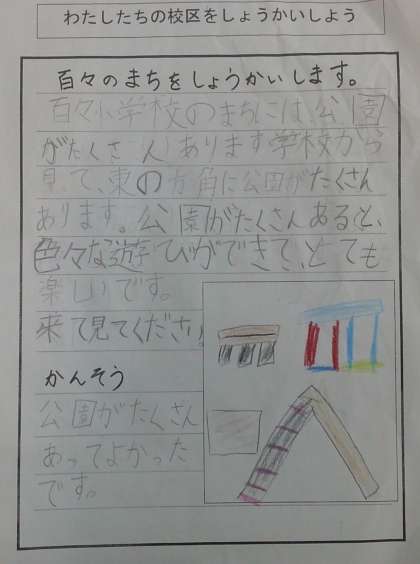 わたしたちの校区をしょうかいしよう
百々のまちをしょうかいします。
百々小学校のまちには、公園
がたくさんあります学校から
見て、東の方角に公園がたくさん
あります。公園がたくさんあると、
色々な遊びができて、とても
楽しいです。
来て見てください。
かんそう
公園がたくさん
あってよかった
です。